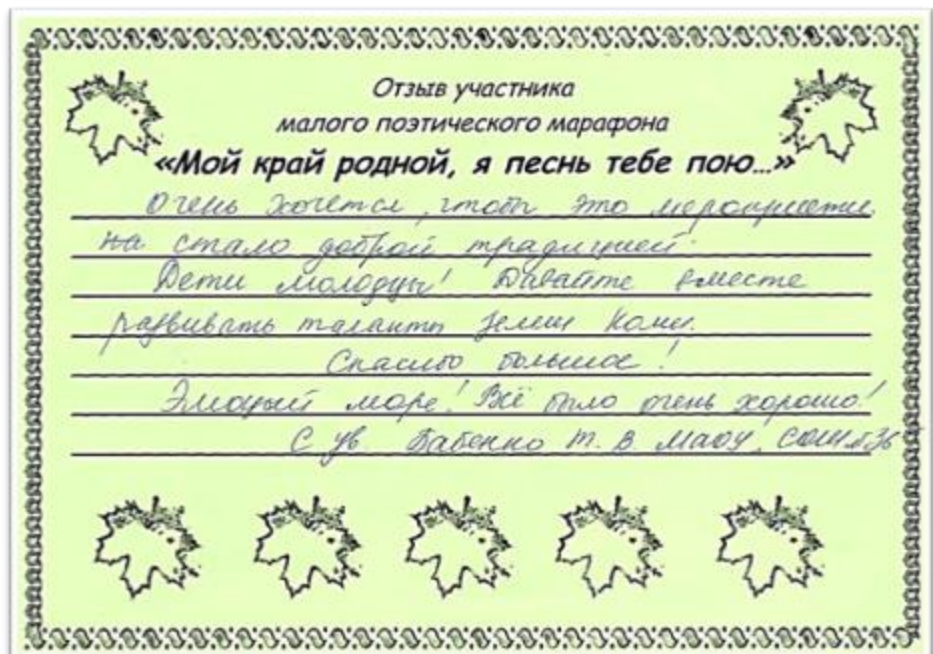 Отзыв участника
малого поэтического марафона
«Мой край родной, я песнь тебе пою...»
Очень хочется, чтобы это мероприятие
стало доброй традицией.
Дети молодцы! Давайте вместе
развивать таланты земли Коми.
Спасибо большое!
Эмоций море! Всё было очень хорошо!
С ув. Бабенко Т. В. МАОУ СОШ